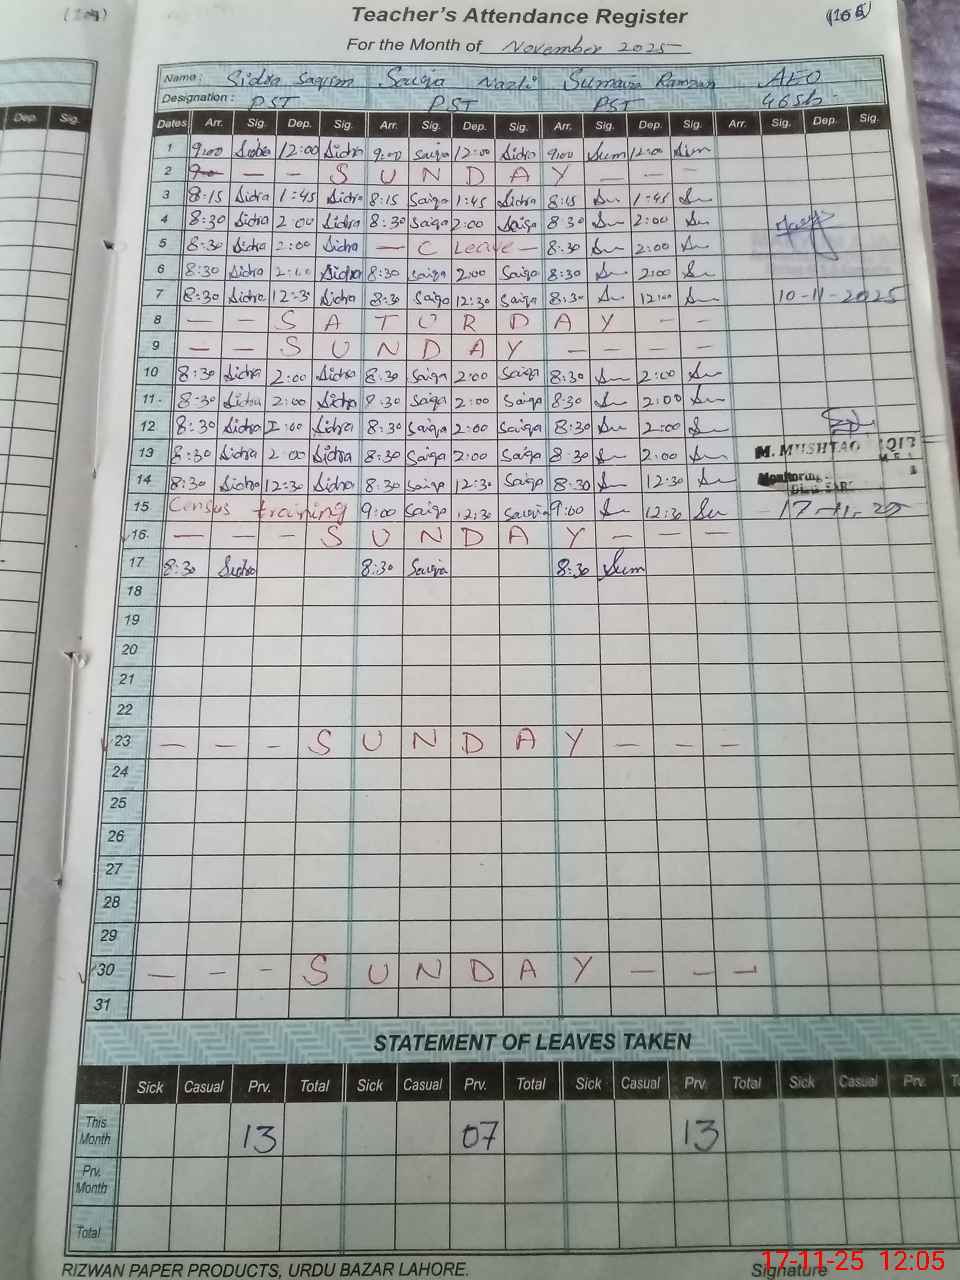 (104)
Teacher's Attendance Register
(105)
For the Month of November 2025
Name: Sidra Saqism Sauja Nazli Sumaira Ramzan AEO
Designation: PST PST PST
Dep. Sig.
Dates Arr. Sig. Dep. Sig. Arr. Sig. Dep. Sig. Arr. Sig. Dep. Sig. Arr. Sig. Dep. Sig.
1 9:00 Sidra 12:00 Sidra 9:00 Saiqa 12:00 Sidra 9:00 Sum 12:00 Sum
2 — — S U N D A Y — — —
3 8:15 Sidra 1:45 Sidra 8:15 Saiqa 1:45 Sidra 8:15 Su 1:45 Su
4 8:30 Sidra 2:00 Sidra 8:30 Saiqa 2:00 Saiqa 8:30 Su 2:00 Su
5 8:30 Sidra 2:00 Sidra — C Leave — 8:30 Su 2:00 Su
6 8:30 Sidra 2:00 Sidra 8:30 Saiqa 2:00 Saiqa 8:30 Su 2:00 Su
7 8:30 Sidra 12:30 Sidra 8:30 Saiqa 12:30 Saiqa 8:30 Su 12:00 Su 10-11-2025
8 — — S A T U R D A Y — —
9 — — S U N D A Y — — — —
10 8:30 Sidra 2:00 Sidra 8:30 Saiqa 2:00 Saiqa 8:30 Su 2:00 Su
11 8:30 Sidra 2:00 Sidra 8:30 Saiqa 2:00 Saiqa 8:30 Su 2:00 Su
12 8:30 Sidra 2:00 Sidra 8:30 Saiqa 2:00 Saiqa 8:30 Su 2:00 Su
13 8:30 Sidra 2:00 Sidra 8:30 Saiqa 2:00 Saiqa 8:30 Su 2:00 Su M. MUSHTAQ
14 8:30 Sidra 12:30 Sidra 8:30 Saiqa 12:30 Saiqa 8:30 Su 12:30 Su Monitoring
15 Census training 9:00 Saiqa 12:30 Sauja 9:00 Su 12:30 Su 17-11-25
16 — — — S U N D A Y — — —
17 8:30 Sidra 8:30 Sauja 8:30 Sum
18
19
20
21
22
23 — — — S U N D A Y — — —
24
25
26
27
28
29
30 — — — S U N D A Y — — —
31
STATEMENT OF LEAVES TAKEN
Sick Casual Prv. Total Sick Casual Prv. Total Sick Casual Prv. Total Sick Casual Prv.
This Month 13 07 13
Prv. Month
Total
RIZWAN PAPER PRODUCTS, URDU BAZAR LAHORE.
Signature
17-11-25 12:05